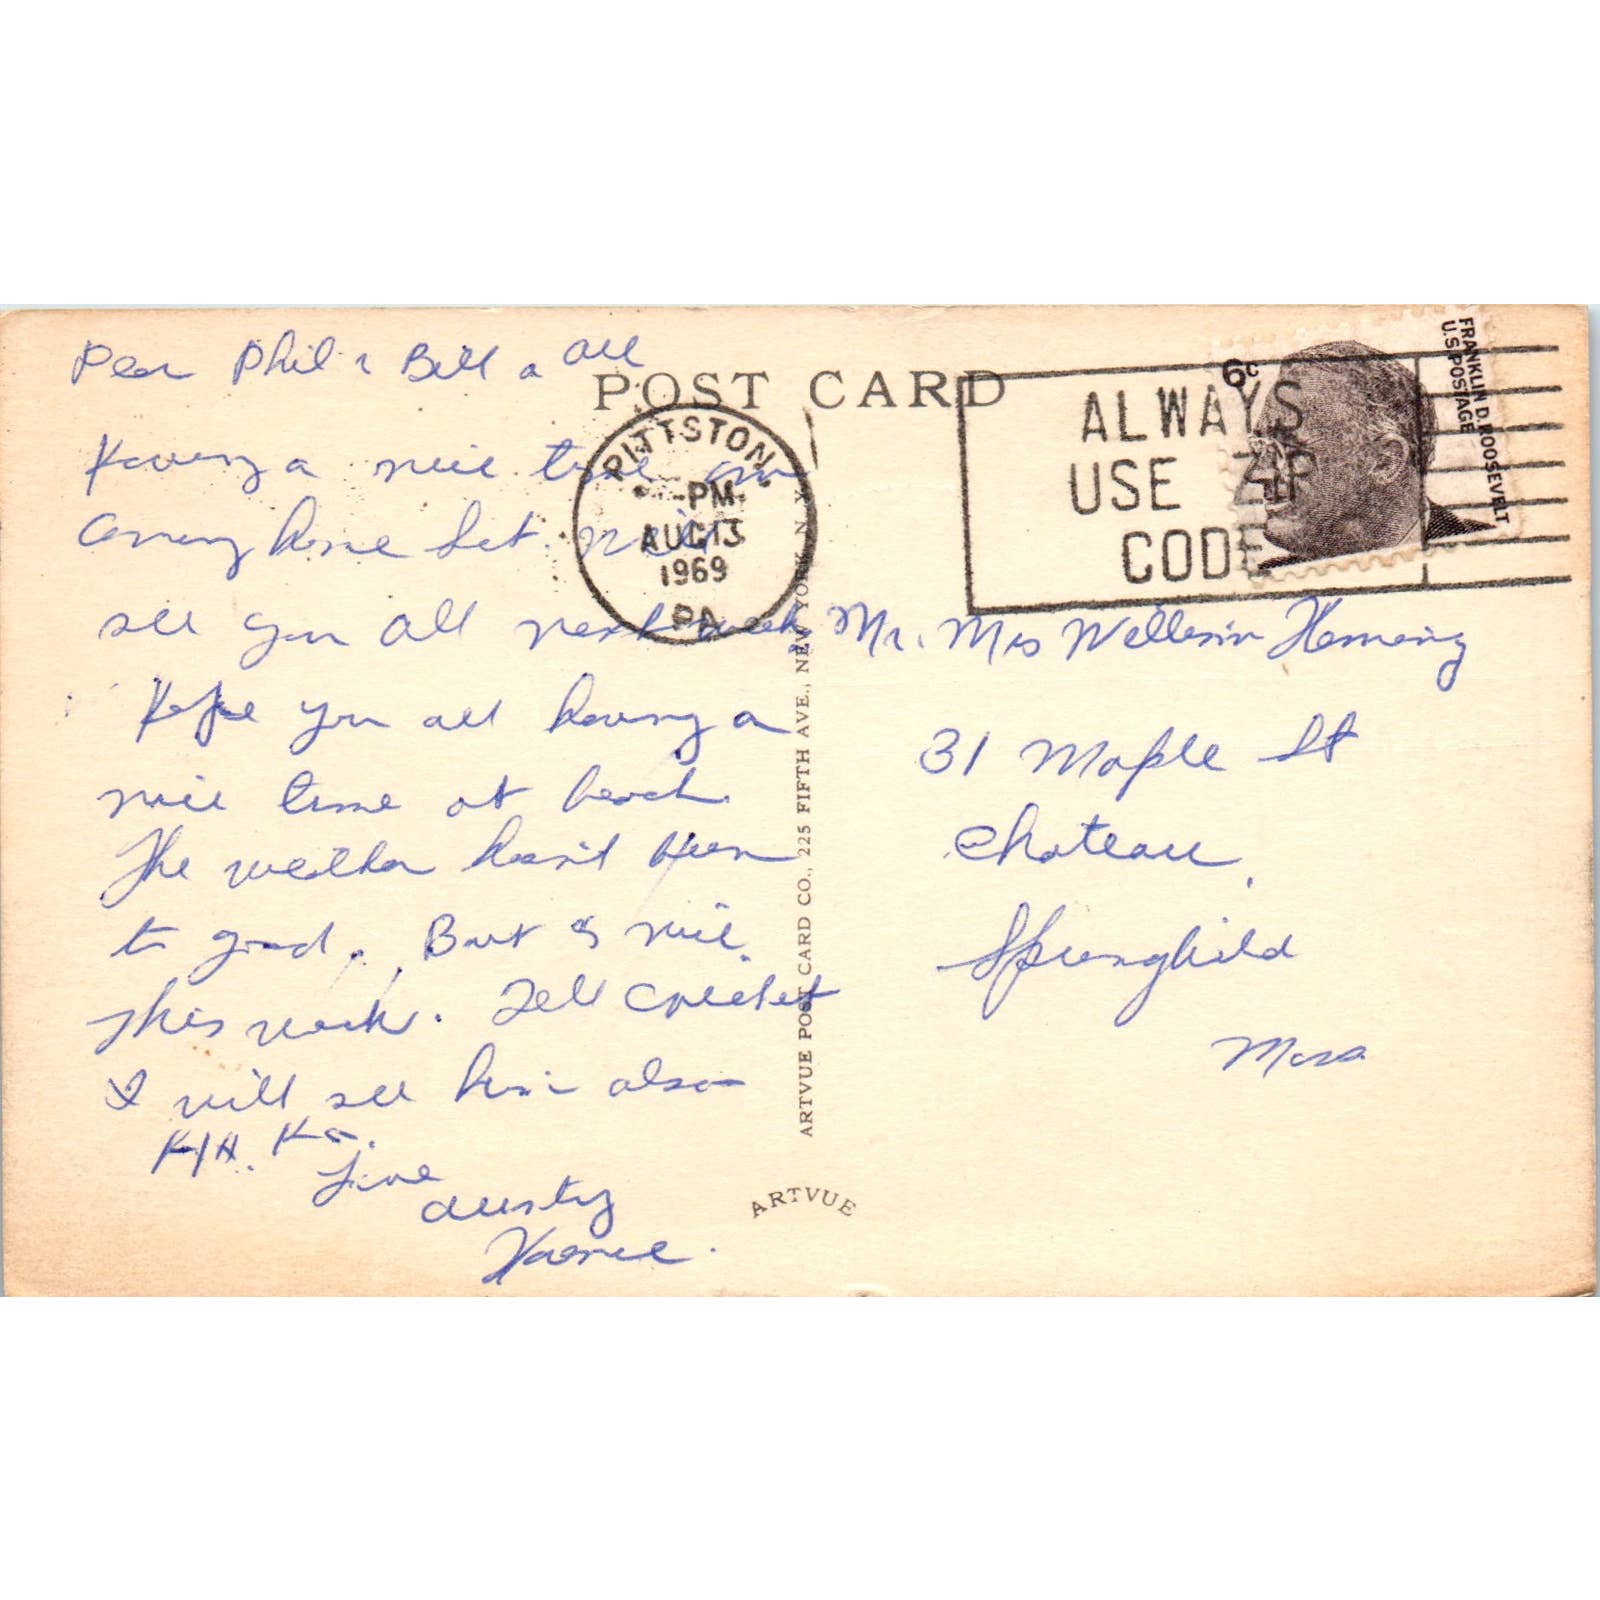 Dear Phil & Bill & All
POST CARD
Having a nice time am
coming home Sat. Will
see you all next week,
Hope you all having a
nice time at beach.
The weather hasn't been
to good. But is nice
this week. Tell Cricket
I will see him also
Love
Austy
PITTSTON
PM
AUG 13
1969
PA
ALWAYS
USE ZIP
CODE
6c
FRANKLIN D. ROOSEVELT
U.S. POSTAGE
Mr. Mrs William
31 Maple St
Chateau,
Springfield
Mass
ARTVUE POST CARD CO., 225 FIFTH AVE., NEW YORK, N.Y.
ARTVUE